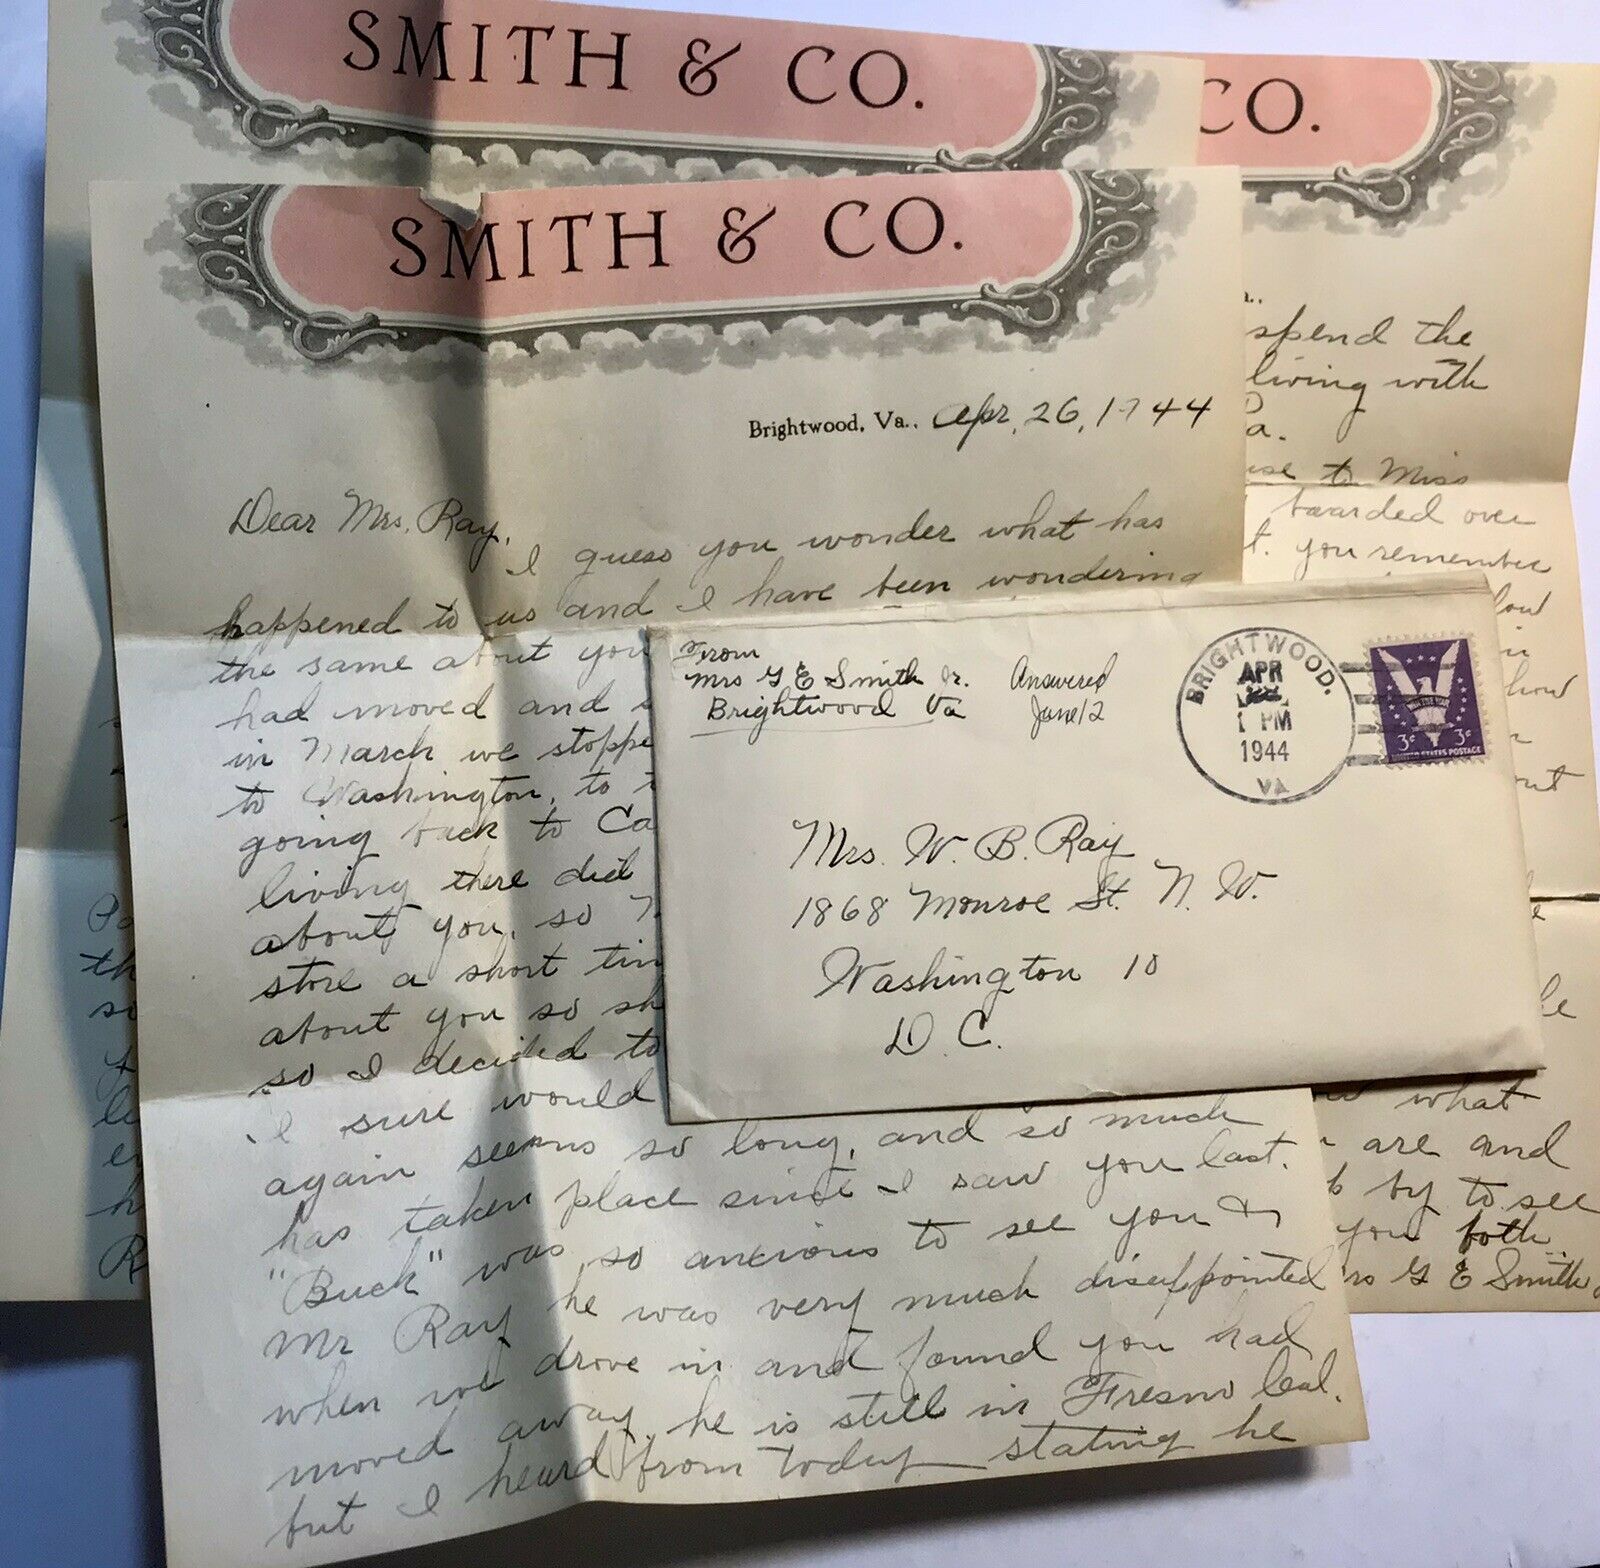 SMITH & CO.
CO.
SMITH & CO.
Brightwood, Va., Apr, 26, 1944
Dear Mrs. Ray,
I guess you wonder what has
happened to us and I have been wondering
the same about you
had moved and
in March we stoppe
to Washington, to
going back to Ca
living there did
about you, so
store a short tim
about you so sh
so I decided to
I sure would
again seems so long, and so much
has taken place since I saw you last.
"Buck" was so anxious to see you &
Mr Ray he was very much disappointed
when we drove in and found you had
moved away, he is still in Fresno Cal.
but I heard from today stating he
From
Mrs G E Smith Jr.
Brightwood Va
Answered
June 12
BRIGHTWOOD.
APR
1 PM
1944
VA
3¢ 3¢
UNITED STATES POSTAGE
Mrs. W. B. Ray
1868 Monroe St. N. W.
Washington 10
D. C.
spend the
living with
a.
use to Miss
boarded over
t. you remember
how
out
he
what
are and
by to see
you both
rs G E Smith